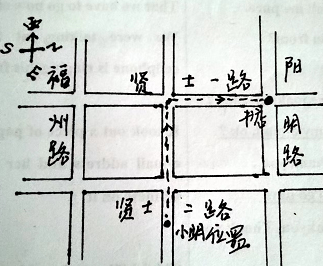 S N
福州路
贤士一路
阳明路
书店
贤士二路
小明位置